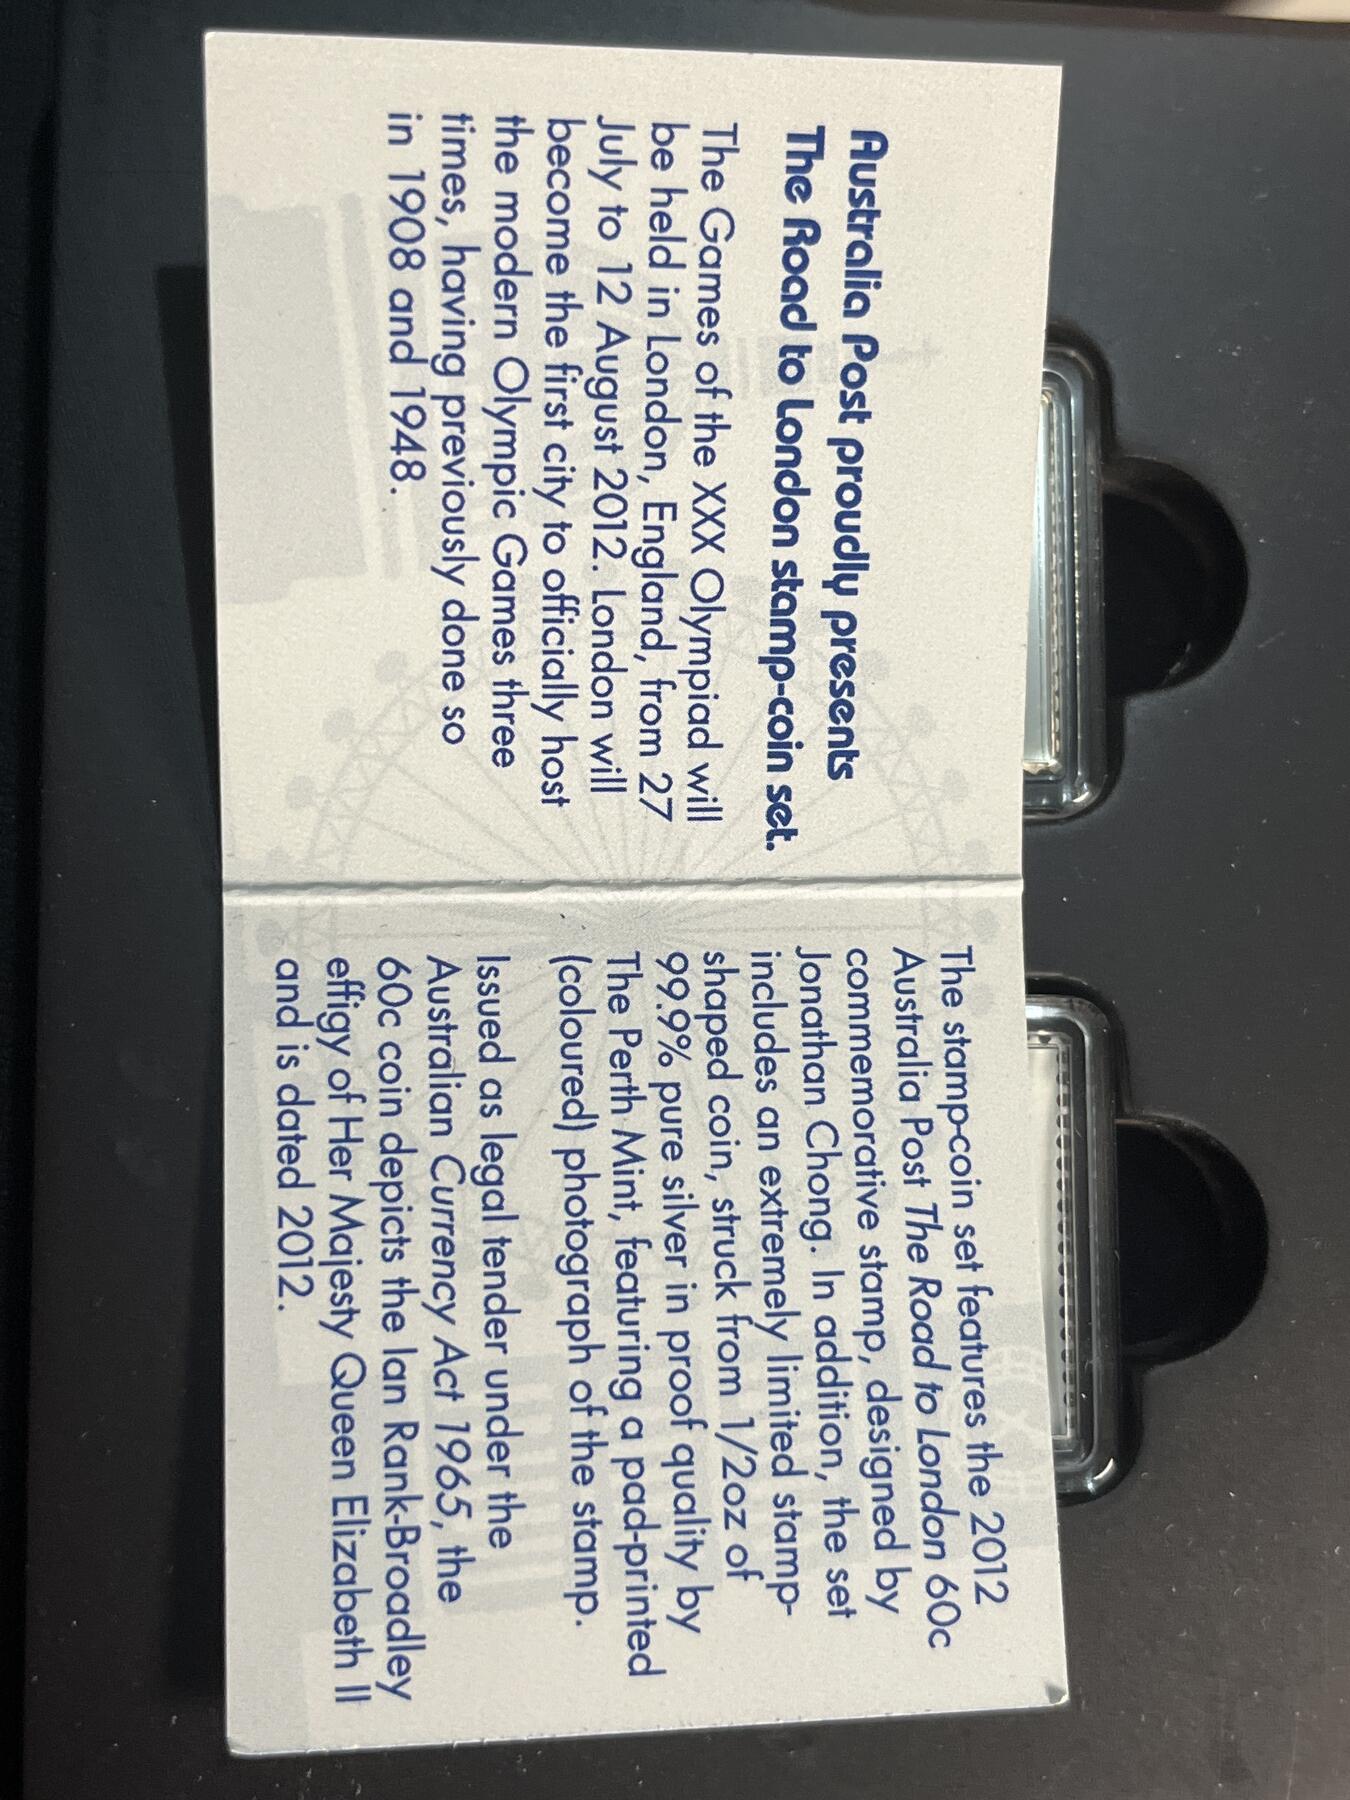 Australia Post proudly presents
The Road to London stamp-coin set.
The Games of the XXX Olympiad will
be held in London, England, from 27
July to 12 August 2012. London will
become the first city to officially host
the modern Olympic Games three
times, having previously done so
in 1908 and 1948.
The stamp-coin set features the 2012
Australia Post The Road to London 60c
commemorative stamp, designed by
Jonathan Chong. In addition, the set
includes an extremely limited stamp-
shaped coin, struck from 1/2oz of
99.9% pure silver in proof quality by
The Perth Mint, featuring a pad-printed
(coloured) photograph of the stamp.
Issued as legal tender under the
Australian Currency Act 1965, the
60c coin depicts the Ian Rank-Broadley
effigy of Her Majesty Queen Elizabeth II
and is dated 2012.